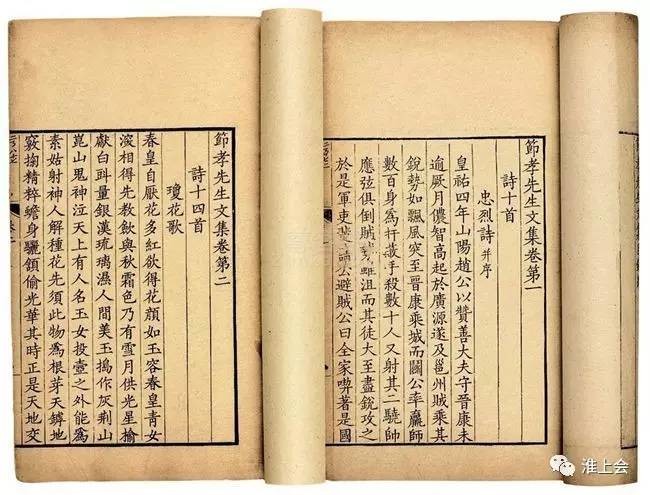 節孝先生文集卷第一
詩十首
忠烈詩 并序
皇祐四年山陽趙公以贊善大夫守晉康未
逾厥月儂智高起於廣源遂及邕州賊乘其
銳勢如飄風突至晉康乘城而闘公率羸師
數百身爲扞蔽手殺數十人又射其二驍帥
應弦俱倒賊雖沮而其徒大至盡銳攻之
於是軍吏公避賊公曰全家著是國
節孝先生文集卷第二
詩十四首
瓊花歌
春皇自厭花多紅欲得花顔如玉容春皇青女
深相得先教飲與秋霜色乃有雪月供光星揄
獻白㪷量銀漢琉璃濕人間美玉搗作灰荆山
崑山鬼神泣天上有人名玉女投壺之外能爲
素姑射神人解種花先須此物爲根芽天罅地
竅搊精粹蟾身驪頷偷光華其時正是天地交
淮上会